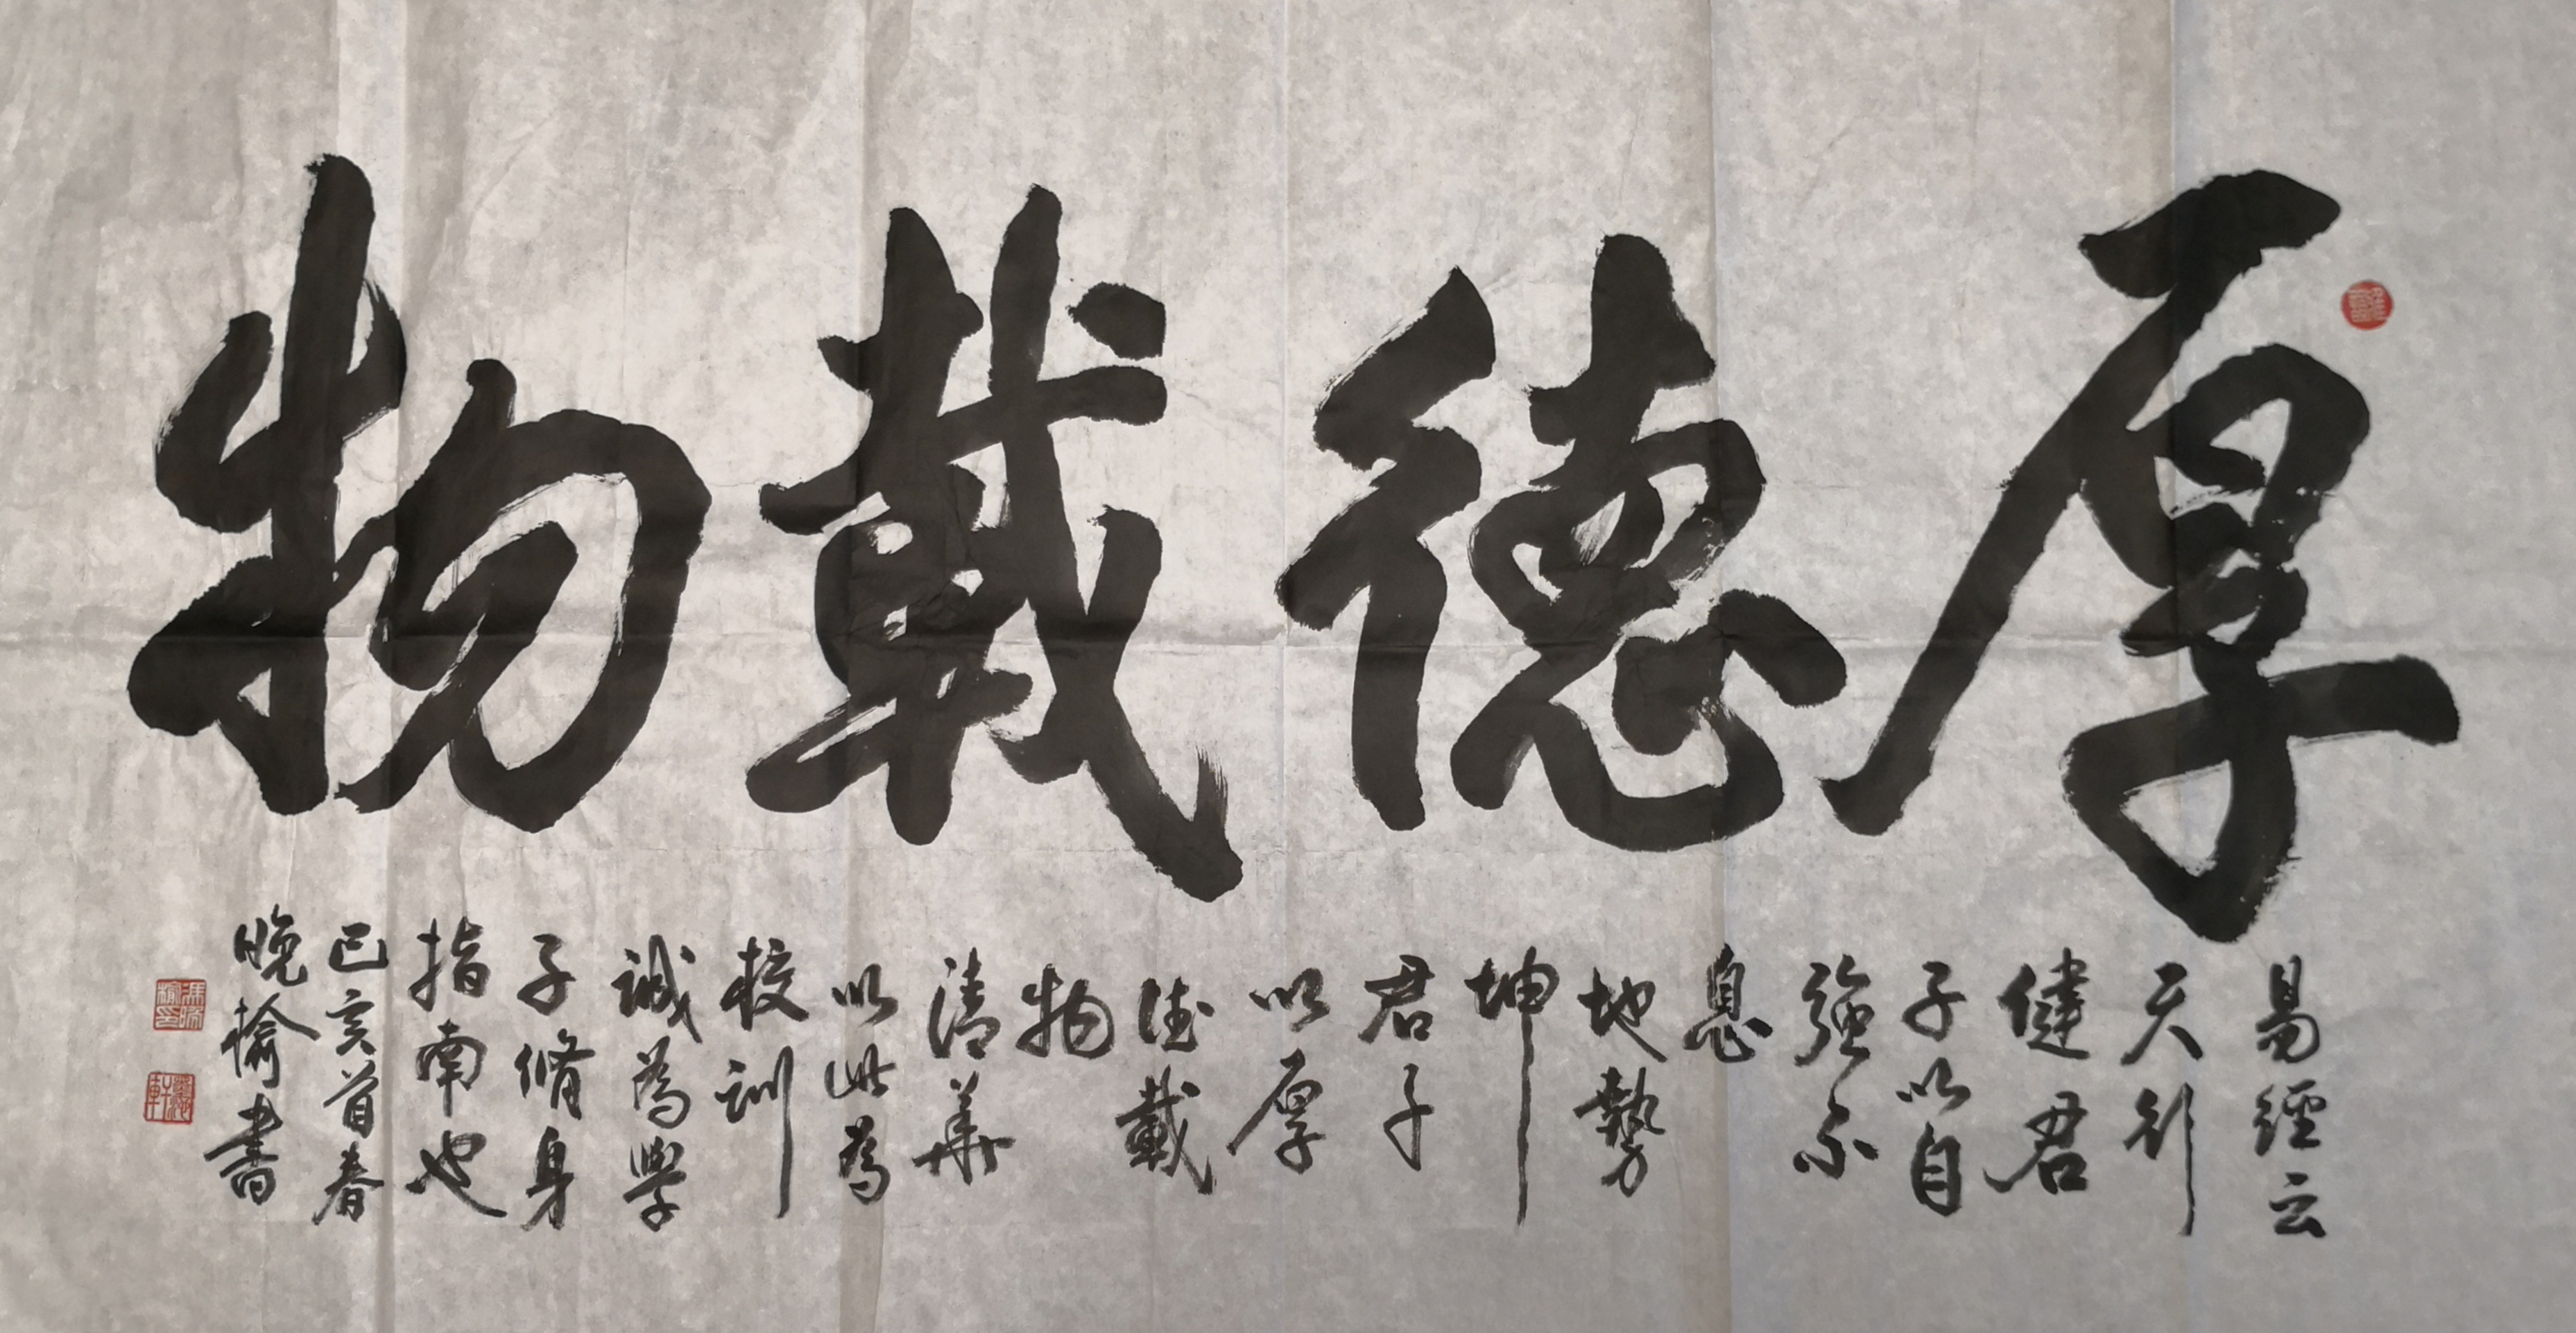 厚德載物
易經云
天行
健君
子以自
強不
息
地勢
坤
君子
以厚
德載
物
清華
以此為
校訓
誠為學
子脩身
指南也
己亥首春
晚榆書